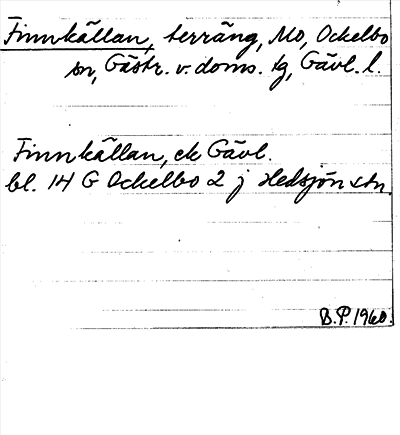 Finnkällan, terräng, Mo, Ockelbo
sn, Gästr. v. doms. tg, Gävl. l.
Finnkällan, ek Gävl.
bl. 14 G Ockelbo 2 j Hedsjön
B.P. 1960.